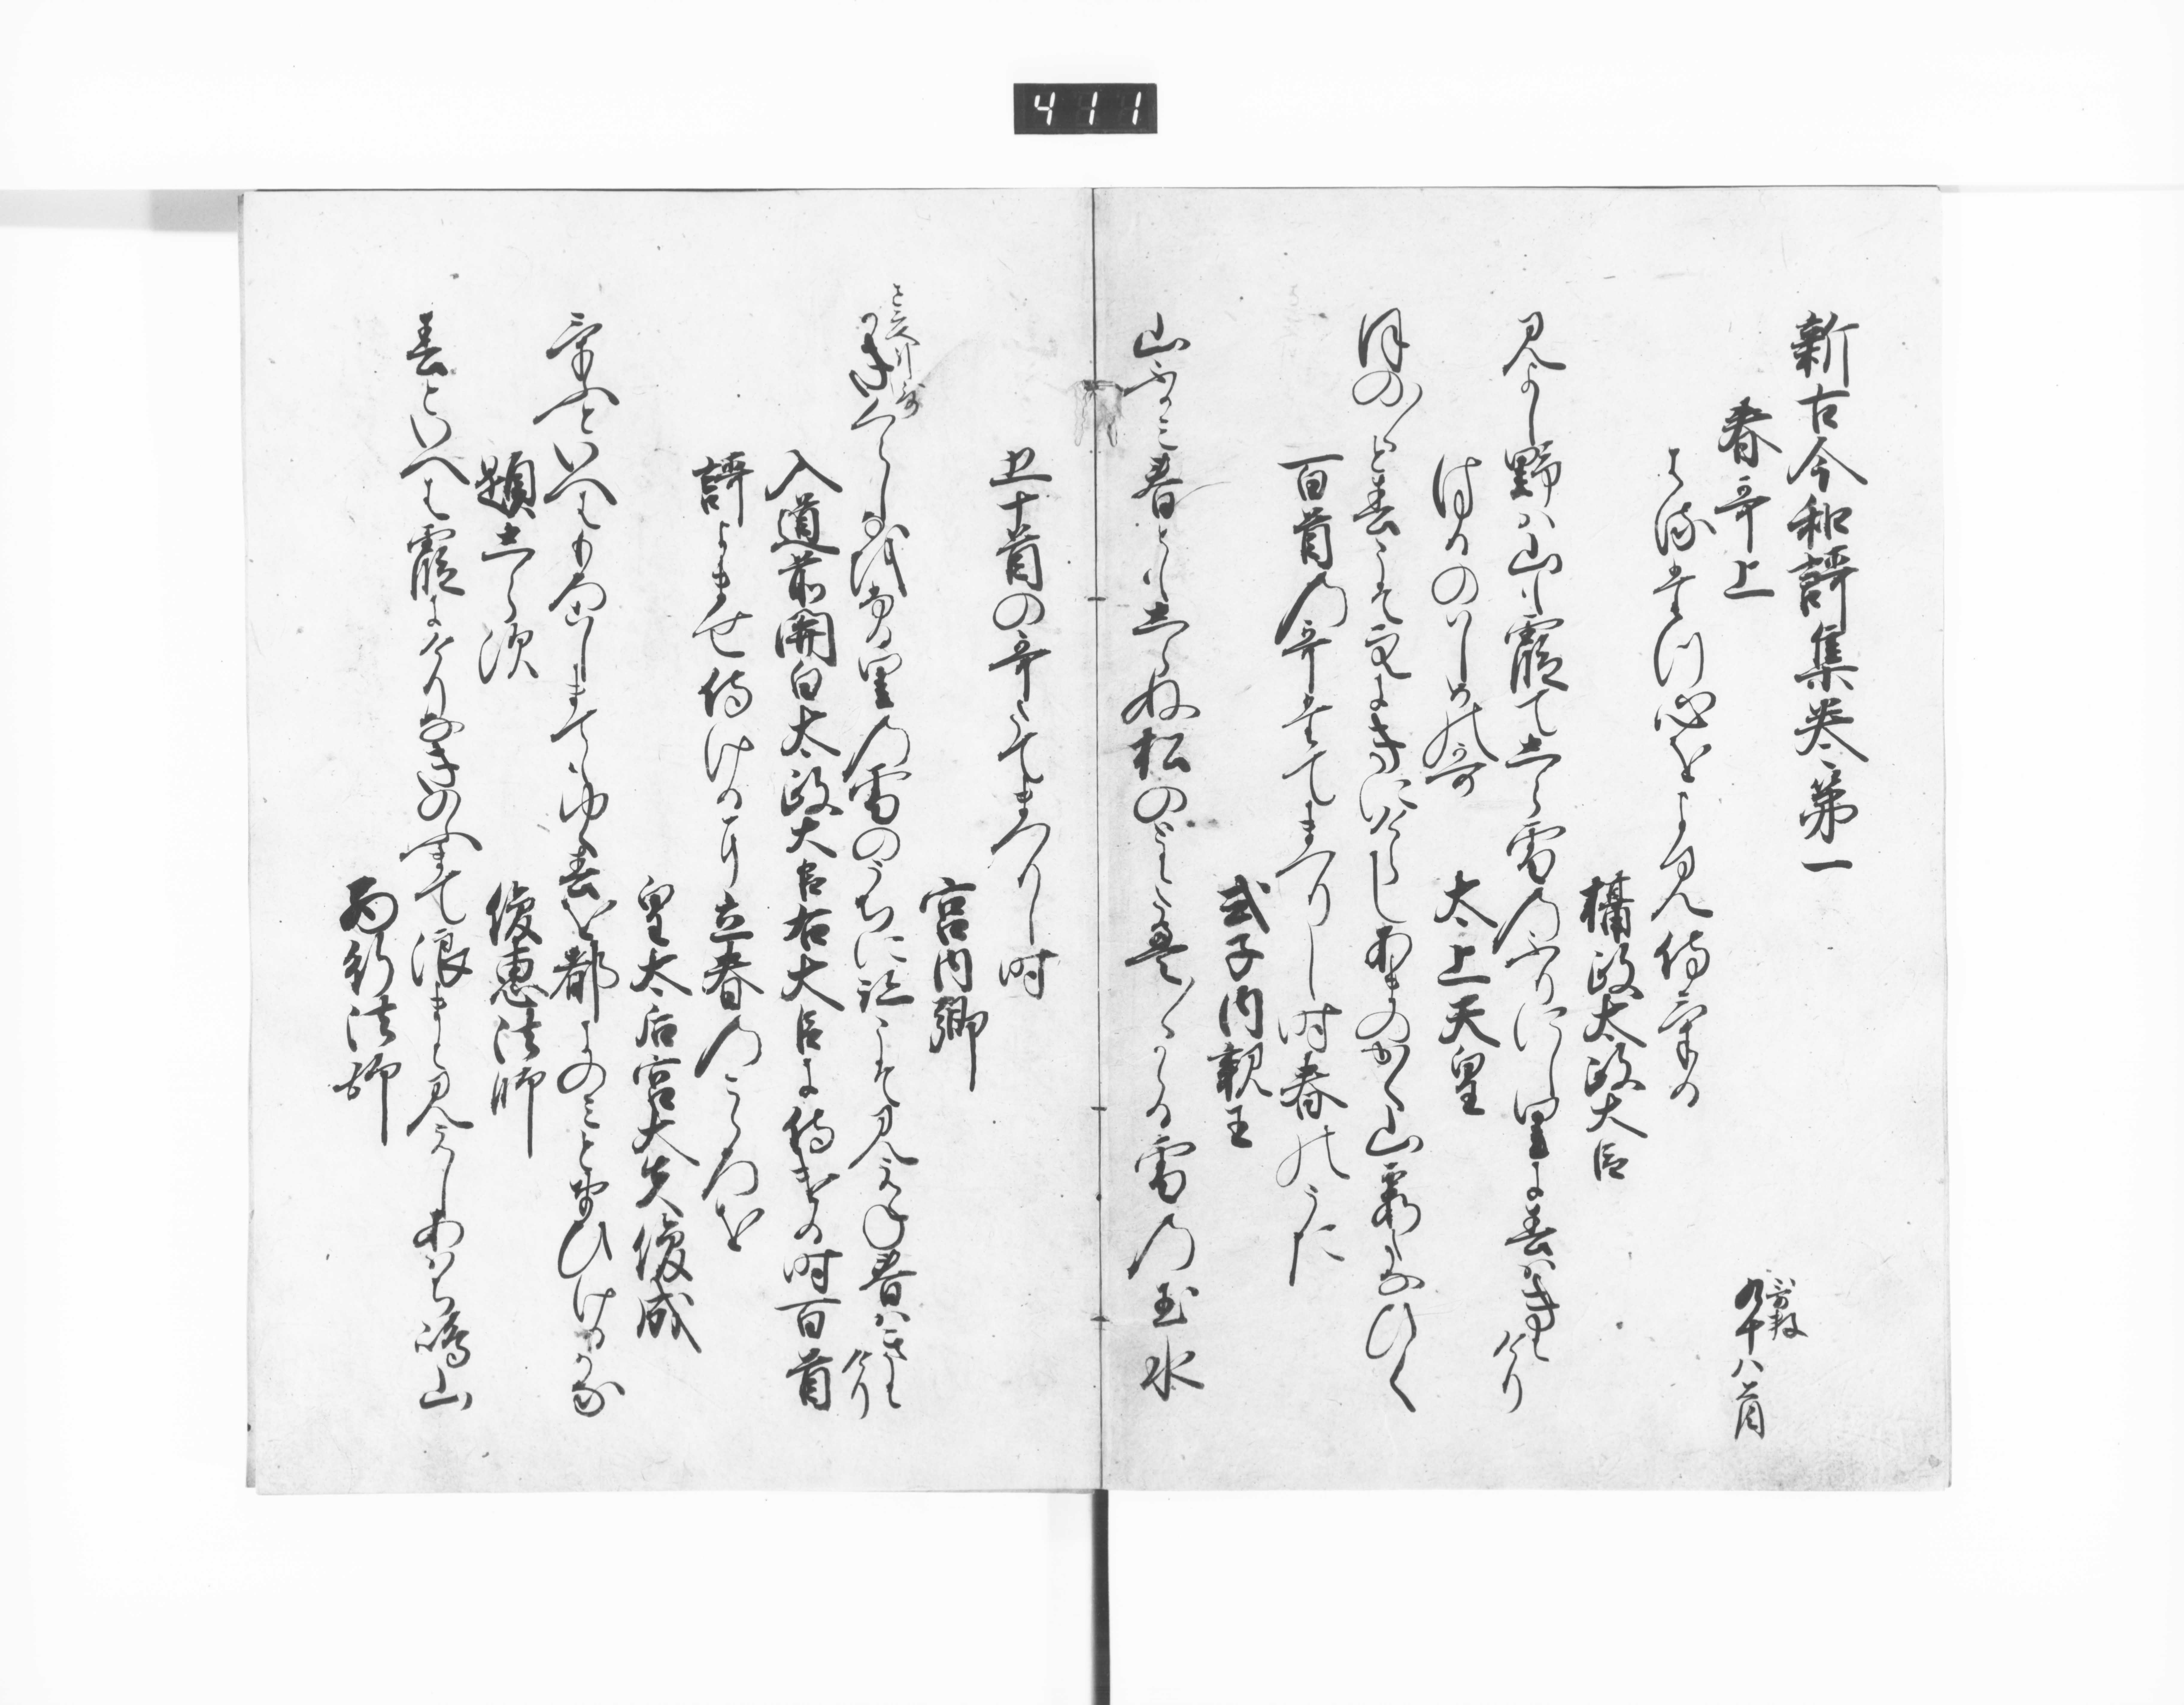 411
新古今和謌集巻第一
哥数
九十八首
春哥上
はるたつ心をよみ侍ける
摂政太政大臣
みよし野は山も霞てしら雪のふりにし里に春はきにけり
はるのはしめの哥
太上天皇
ほの/\と春こそ空にきにけらしあまのかく山霞たなひく
百首の哥たてまつりし時春のうた
式子内親王
山ふかみ春ともしらぬ松のとにたえ/\かゝる雪の玉水
五十首の哥たてまつりし時
宮内卿
かきくらし猶ふる里の雪のうちに跡こそ見えね春はきにけり
入道前関白太政大臣右大臣に侍ける時百首
謌よませ侍けるに立春のこゝろを
皇太后宮大夫俊成
けふといへはもろこしまてもゆく春を都にのみとおもひけるかな
題しらす
俊恵法師
春といへは霞にけりなきのふまて浪まに見えしあはち嶋山
西行法師